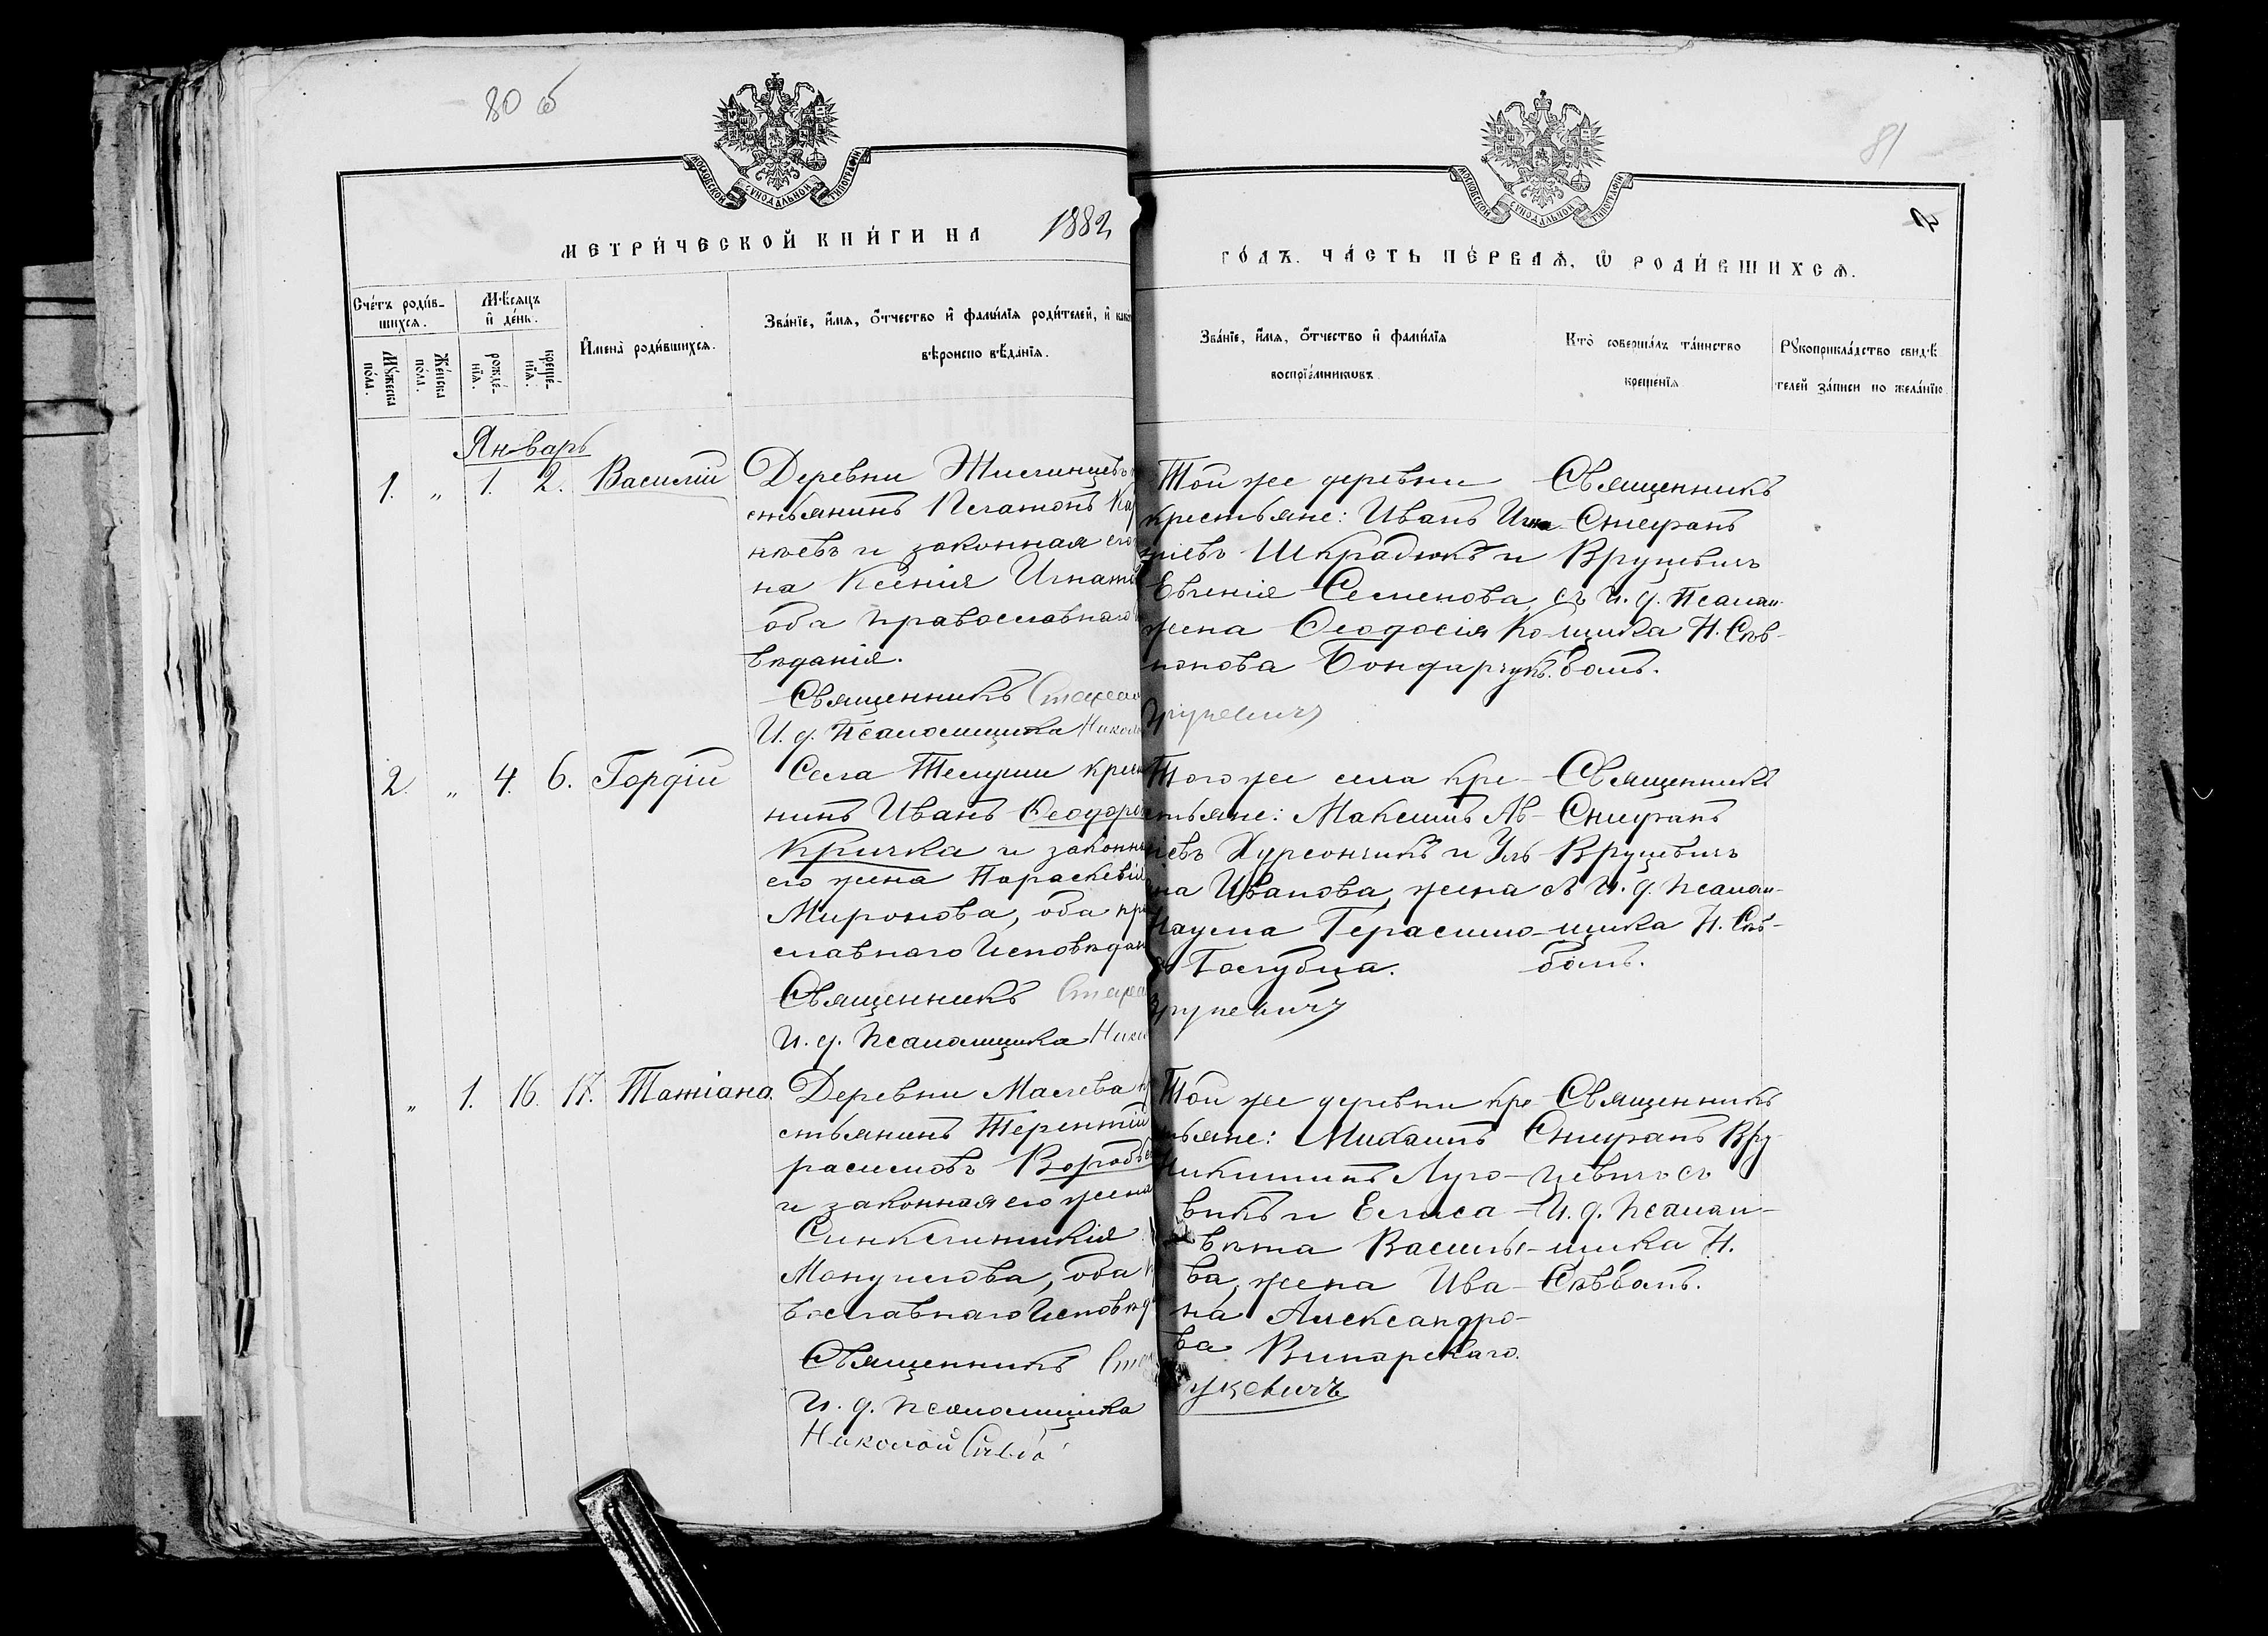 80 об
81
МОСКОВСКОЙ СѴНОДАЛЬНОЙ ТИПОГРАФІИ
МОСКОВСКОЙ СѴНОДАЛЬНОЙ ТИПОГРАФІИ
МЕТРИ́ЧЕСКОЙ КНИ́ГИ НА 1882
ГО́ДЪ. ЧА́СТЬ ПЕ́РВАѦ, Ѡ РОДИ́ВШИХСѦ.
Сче́тъ роди́в-
шихсѧ.
Мꙋ́жеска
по́ла.
Же́нска
по́ла.
Мѣ́сѧцъ
и де́нь.
рожде́-
нїѧ.
креще́-
нїѧ.
Имена̀ роди́вшихсѧ.
Зва́нїе, и́мѧ, о́тчество и фами́лїѧ роди́телей, и како
вѣроиспо вѣ́данїѧ.
Зва́нїе, и́мѧ, о́тчество и фами́лїѧ
воспрїе́мниковъ
Кто̀ соверша́лъ та́инство
креще́нїѧ
Рꙋкоприкла́дство свидѣ́
телей за́писи по жела́нїю
Январь
1. " 1. 2. Василій
Деревни
стьянинъ Платонъ Кар
нѣевъ и законная его
на Ксенія Игнать
оба православнаго
вѣданія.
Священникъ Стефан
И. д. Псаломщика Никол
Той же деревни
крестьяне: Иванъ Игна
тіевъ Шкрадюкъ и
Евгенія Семенова,
жена Ѳеодосія Ко
нонова Бондарчукъ.
Священникъ
Стефанъ
Вруцевичъ
съ И. д. Псалом-
щика Н. Сѣв-
бомъ.
2. " 4. 6. Гордій
Села Телуши крест
нинъ Иванъ Ѳеодоро
Кричка и законн
его жена Параскевія
Миронова, оба пр
славнаго Исповѣдан
Священникъ Стефан
И. д. Псаломщика Нико
Того же села кре-
стьяне: Максимъ Ав-
іевъ Хурсончикъ и Уль
на Иванова, жена
Наума Герасимо-
а Голубца.
Священникъ
Стефанъ
Вруцевичъ
съ И. д. Псалом-
щика Н. Сѣв-
бомъ.
" 1. 16. 17. Татіана.
Деревни Малева кр
стьянинъ Терентій
расимовъ Воробье
и законная его жена
Синклитикія
Мануилова, оба п
вославнаго Исповѣд
Священникъ Стеф
И. д. Псаломщика
Николай
Той же деревни кре
стьяне: Михаилъ
Никитинъ Луго-
викъ и Елиса-
вѣта Василье-
ва, жена Ива-
на Александро-
ва Винарскаго.
Священникъ
Стефанъ Вру-
цевичъ съ
И. д. Псалом-
щика Н.
Сѣвбомъ.